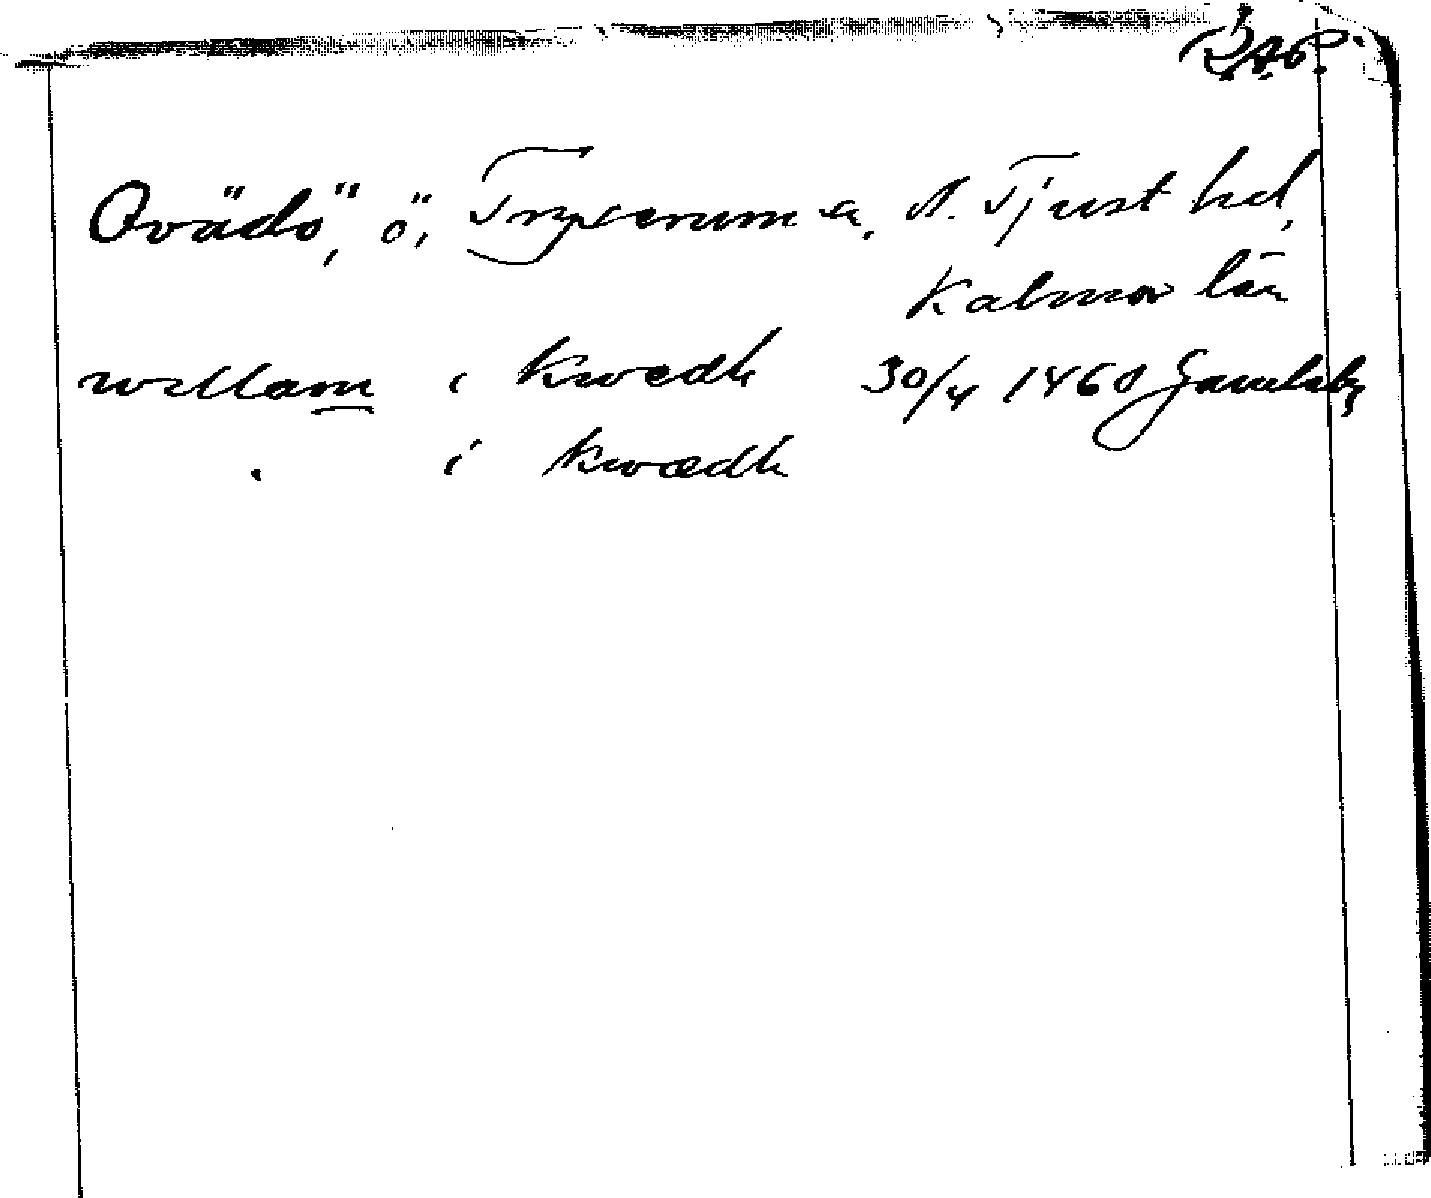 R.A.P.
Qvädö, ö, Tryserum s., N. Tjust hd,
Kalmar län
wællom i kwedh 30/4 1460
. i kwædh